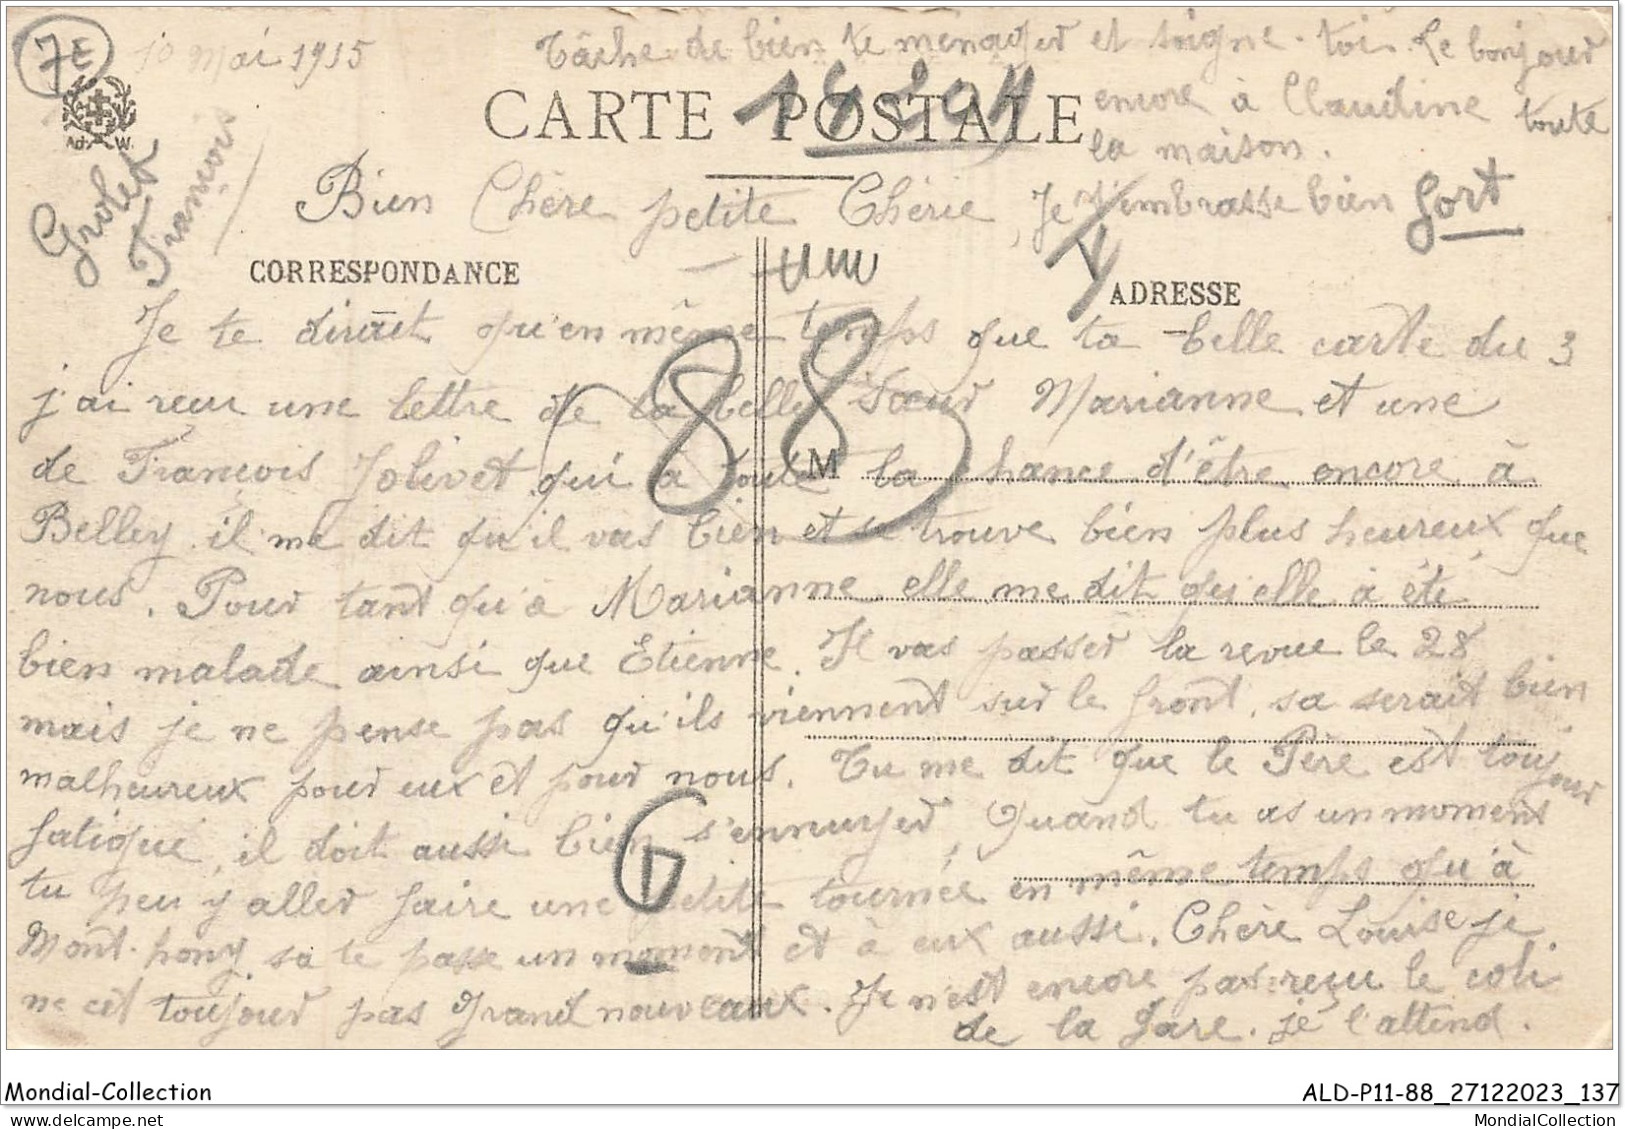 7E
10 Mai 1915
Tâche de bien te menager et soigne-toi. Le bonjour
encore à Claudine toute
la maison.
CARTE POSTALE
Ad. W.
Grolet
François
Bien Chère petite Chérie, Je t'embrasse bien fort
CORRESPONDANCE
ADRESSE
Je te dirait qu'en même temps que ta belle carte du 3
j'ai reçu une lettre de la belle Sœur Marianne et une
de François Jolivet qui à toute la chance d'être encore à
M
88
Belley. il me dit qu'il vas bien et se trouve bien plus heureux que
nous. Pour tant qu'à Marianne elle me dit qu'elle à été
bien malade ainsi que Etienne. Il vas passer la revue le 28
mais je ne pense pas qu'ils viennent sur le front, sa serait bien
malheureux pour eux et pour nous. Tu me dit que le Père est toujour
fatigué, il doit aussi bien s'ennuyer, Quand tu as un moment
tu peu y aller faire une petite tournée en même temps qu'à
Mont-pony sa te passe un moment et à eux aussi. Chère Louise je
ne cet toujour pas grand nouveaux. Je n'est encore pas reçu le coli
de la gare. je l'attend.
Mondial-Collection
ALD-P11-88_27122023_137
MondialCollection